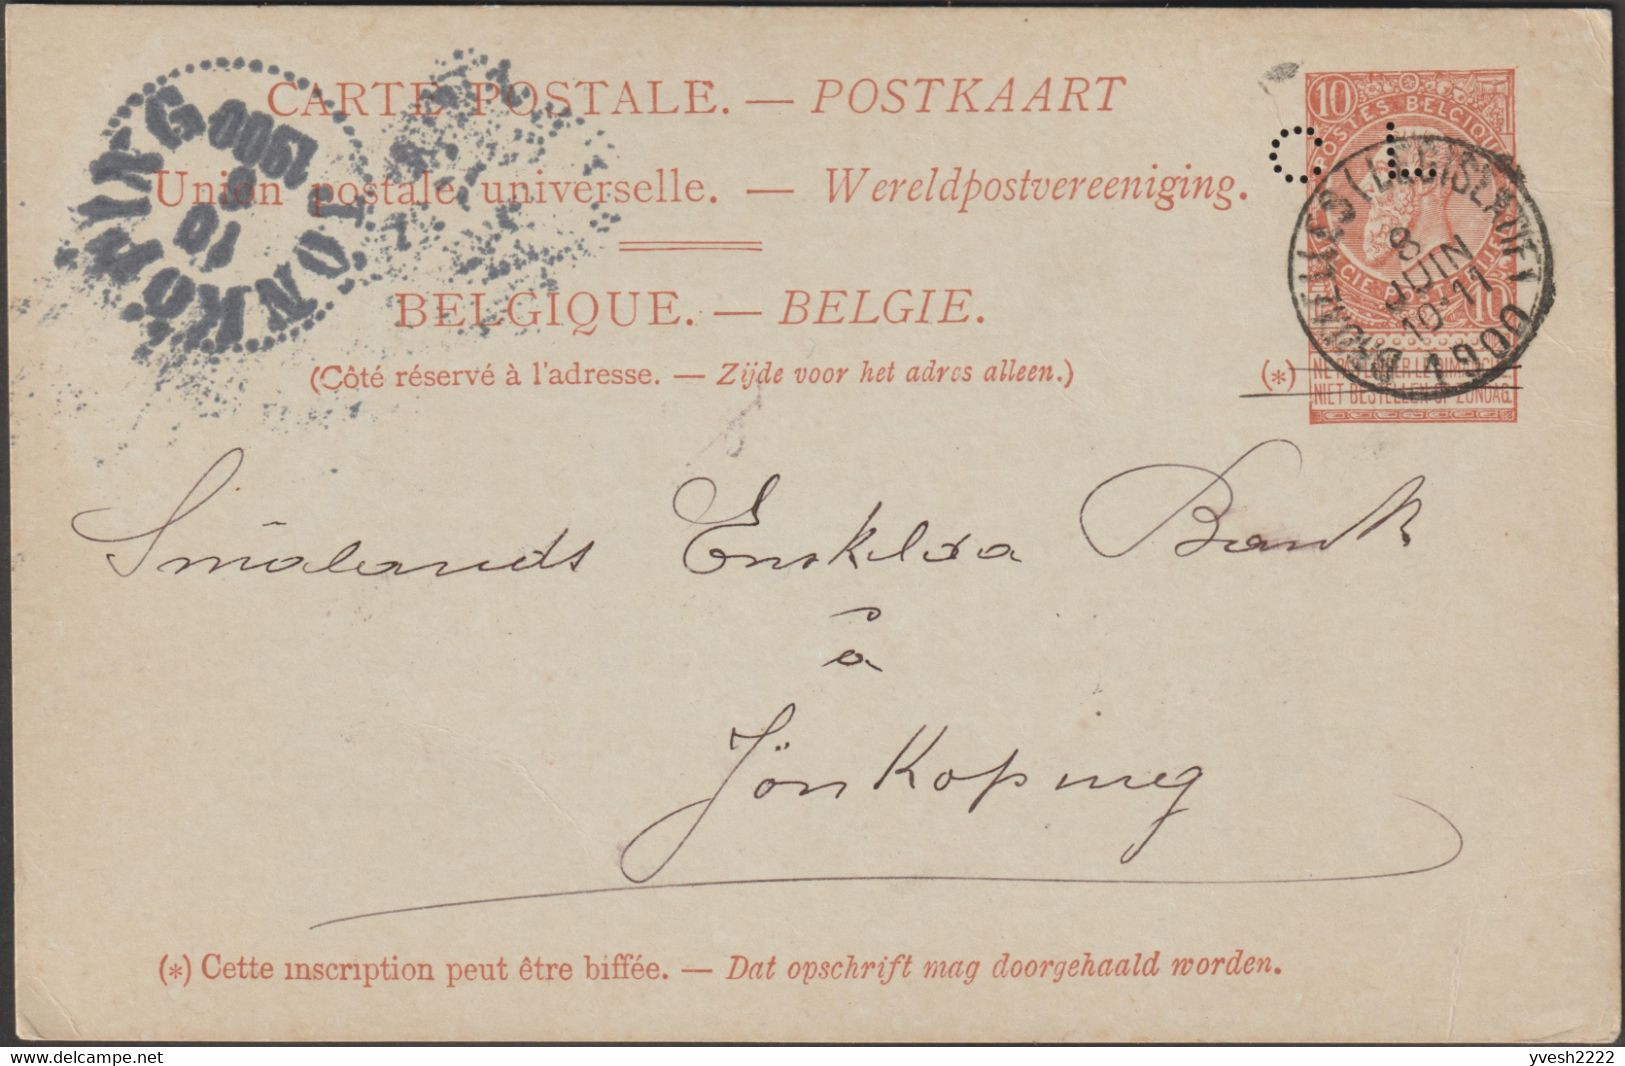 CARTE POSTALE. — POSTKAART
Union postale universelle. — Wereldpostvereeniging.
BELGIQUE. — BELGIE.
(Côté réservé à l'adresse. — Zijde voor het adres alleen.)
(*)
10
POSTES BELGIQUE
10
NIET BESTELLEN OP ZONDAG.
BRUXELLES (LEGISLATIF)
8
JUIN
10-11
1900
JÖNKÖPING
1900
10
6
C L
Smålands Enskilda Bank
à
Jönkoping
(*) Cette inscription peut être biffée. — Dat opschrift mag doorgehaald worden.
yvesh2222